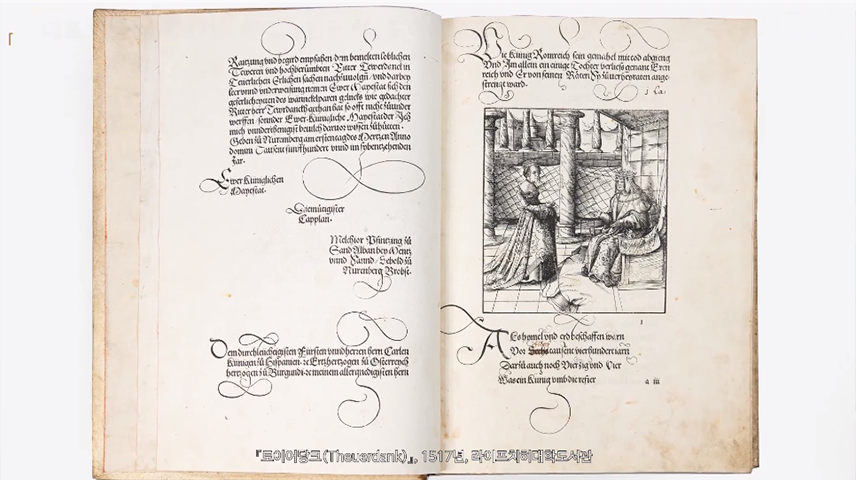 Raitzung vnd begird empfahen dem bemelten loblichen
Tewren vnd hochberümbten Ritter Tewrdanck in
Teuerlichen Erlichen sachen nachzuuolgn / vnd darbey
ler vnnd vnderweisung nemen Ewer Mayestat sich den
geferlicheyten des wannckelparen glücks wie gedachter
Ritter herr Tewrdanck gethan hat so offt nicht zůunder
werffen / sonnder Ewer Kunigliche Mayestat der Ich
mich vnnderthenigist beuilch daruor wissen zůhütten .
Geben zů Nuremberg am ersten tag des Mertzen Anno
domini Tausent funffhundert vnnd im sybentzehenden
Jar .
Ewer Kuniglichen
Mayestat .
Diemütigister
Capplan .
Melchior Pfintzing zů
Sand Alban bey Mentz
vnnd Sannd Sebold zů
Nurenberg Brobst .
Dem durchleuchtigisten Fürsten vnnd herren hern Carlen
Kunigen zů Hispanien ꝛc Ertzhertzogen zů Osterreych
hertzogen zů Burgundi ꝛc meinem allergnedigisten hern
Wie Kunig Romreich sein gemahel mit tod abgieng
Vnd Im allein ein einige Tochter verließ genant Eren
reich vnd Er von seinen Räten sy zůuerheyraten ange-
strenngt ward .
A Ls hymel vnd erd beschaffen warn
Vor Sechs tausent vierhundert iarn
Darzů auch noch Vierzig vnd Vier
Was ein Kunig vmb die refier
a iii
『토이어당크(Theuerdank)』, 1517년, 라이프치히대학도서관